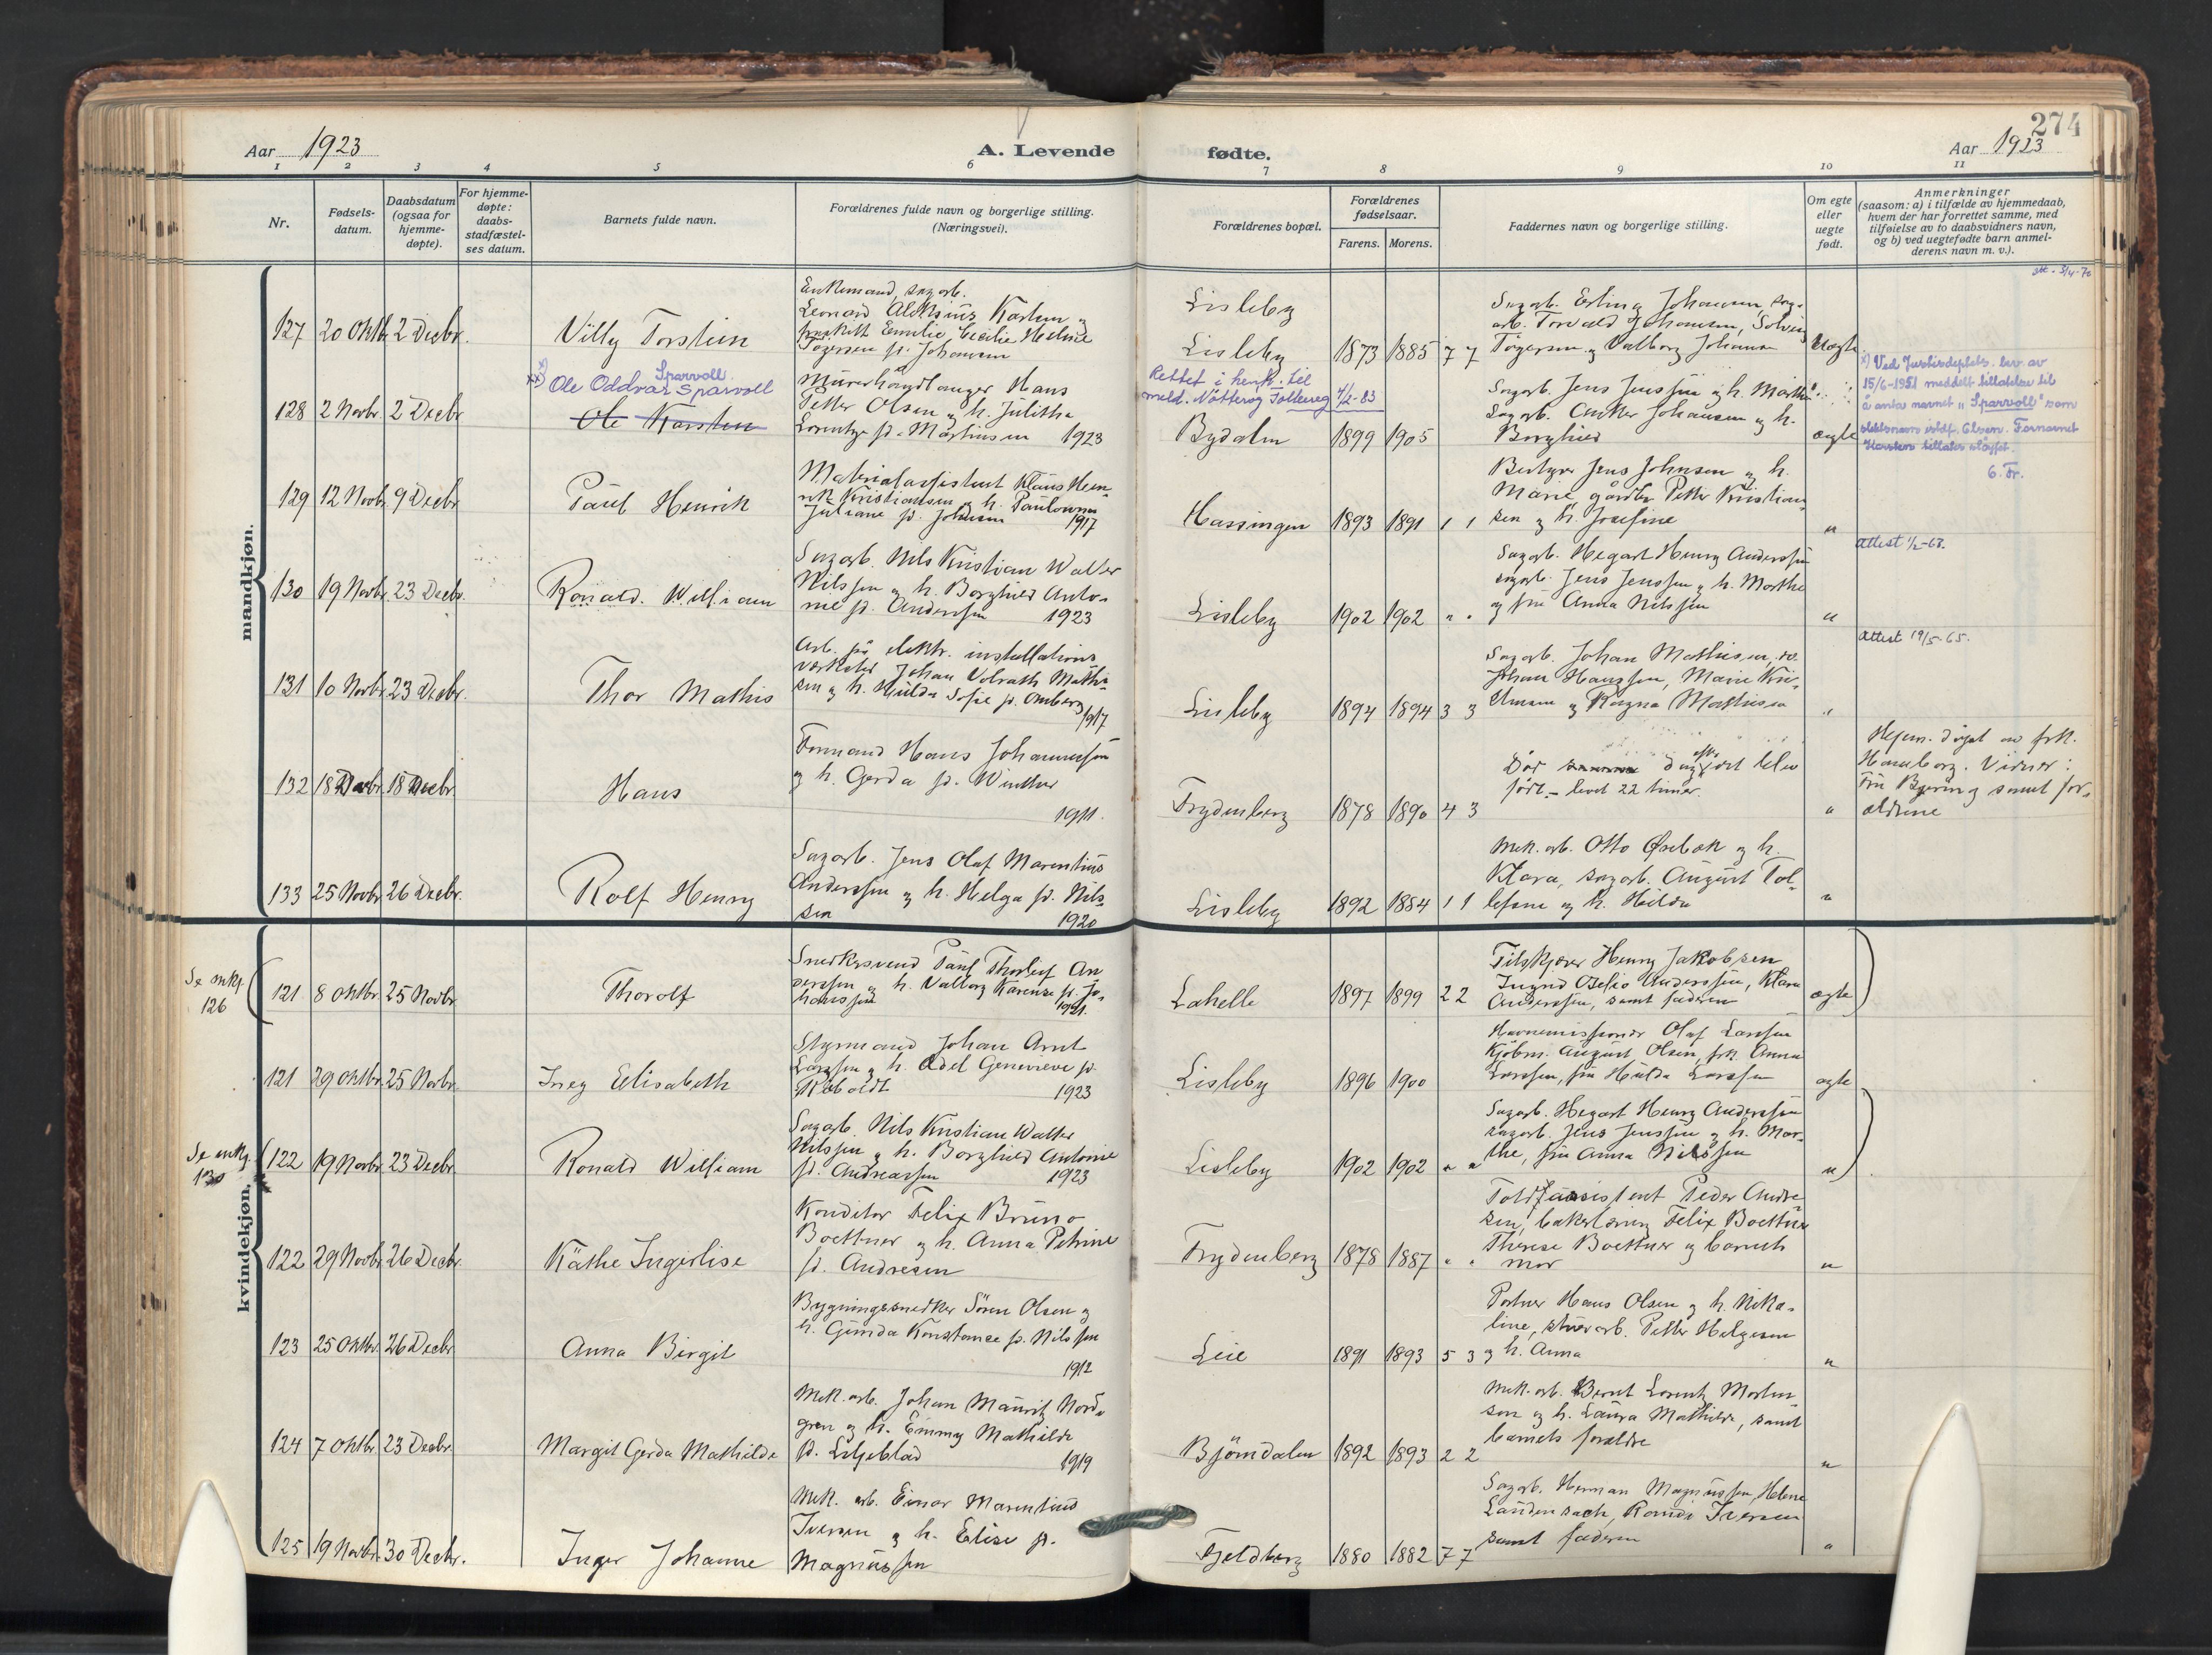 274
Aar 1923
A. Levende
fødte.
Aar 1923
1 2 3 4 5 6 7 8 9 10 11
Nr.
Fødsels-
datum.
Daabsdatum
(ogsaa for
hjemme-
døpte).
For hjemme-
døpte:
daabs-
stadfæstel-
ses datum.
Barnets fulde navn.
Forældrenes fulde navn og borgerlige stilling.
(Næringsvei).
Forældrenes bopæl.
Forældrenes
fødselsaar.
Farens. Morens.
Faddernes navn og borgerlige stilling.
Om egte
eller
uegte
født.
Anmerkninger
(saasom: a) i tilfælde av hjemmedaab,
hvem der har forrettet samme, med
tilføielse av to daabsvidners navn,
og b) ved uegtefødte barn anmel-
derens navn m. v.).
mandkjøn.
127 20 Oktb. 2 Decbr.
Villy Torstein
Enkemand, sagarb.
Leonard Aleksius Karlsen og
fraskilt Emilie Cecilie Heline
Tøgersen f. Johansen
Lisleby
Lisleby
1873 1885 7 7
Sagarb. Erling Johansen, sag-
arb. Torvald Johansen, Solveig
Tøgersen og Valborg Johansen
Uegte
128 2 Novbr. 2 Decbr
x) Sparvoll
xx) Ole Oddvar Sparvoll
Ole Karsten
Murerhåndlanger Hans
Petter Olsen og h. Julitha
Lorentze f. Martinsen 1923
Rettet i henh. til
meld. Nøtterøy Folkereg 7/2-83
Bydalen
1899 1905
Sagarb. Jens Jenssen og h. Marthe
Sagarb. Anker Johansen og h.
Borghild
ægte
x) Ved Justisdeptets. brev av
15/6-1951 meddelt tillatelse til
å anta navnet "Sparvoll" som
slektsnavn istdf. Olsen. Fornavnet
Karsten tillates sløyfet.
6. Fr.
129 12 Novbr 9 Decbr
Paul Henrik
Materialassistent Klaus Hen-
rik Kristiansen og h. Paulowna
Juliane f. Johnsen 1917
Hassingen
1893 1891 1 1
Bestyrer Jens Johnsen og h.
Marie, gårdbr Petter Kristian-
sen og h. Josefine
"
130 19 Novbr. 23 Decbr.
Ronald William
Sagarb. Nils Kristian Walter
Nilssen og h. Borghild Anto-
nie f. Anderssen 1923
Lisleby
1902 1902 " "
Sagarb. Hegart Henry Anderssen
sagarb. Jens Jenssen og h. Marthe
og fru Anna Nilssen
"
Attest 1/2-68.
131 10 Novbr. 23 Decbr.
Thor Mathis
Arb. på elektr. installations
værksted Johan Volrath Mathi-
sen og h. Hulda Sofie f. Omberg
1917
Lisleby
1894 1894 3 3
Sagarb. Johan Mathisen, do.
Johan Hanssen, Marie Kri-
stiansen og Ragna Mathisen
"
Attest 19/5-65.
132 18 Decbr 18 Decbr
Hans
Formand Hans Johannessen
og h. Gerda f. Winther
1911.
Frydenberg
1878 1890 4 3
Død dag efter det blev
født. - levet 22 timer.
"
Hjem. døpt av frk.
Hamborg. Vidner:
Fru Bjering samt for-
ældrene
133 25 Novbr 26 Decbr.
Rolf Henry
Sagarb. Jens Olaf Marentius
Anderssen og h. Helga f. Nils-
sen 1920
Lisleby
1892 1884 1 1
Mek. arb. Otto Ørebæk og h.
Klara, sagarb. August Tol-
lefsen og h. Hilda
"
kvindekjøn.
Se mkj.
126
121 8 Oktbr. 25 Novbr
Thorolf
Snedkersvend Paul Thorleif An
derssen og h. Valborg Karense f. Jo-
hanssen 1921.
Lahelle
1897 1899 2 2
Filskjærer Henry Jakobsen
Ingrid Otelie Anderssen, Klara
Anderssen, samt faderen
ægte
121 29 Oktbr. 25 Novbr.
Iney Elisabeth
Styrmand Johan Arnt
Larssen og h. Adel Genevieve f.
Skiboldt 1923
Lisleby
1896 1900
Havnemissionær Olaf Larssen
Kjøbm. August Olsen, frk. Anna
Larssen, fru Hulda Larssen
ægte
Se mkj.
130
122 19 Novbr. 23 Decbr
Ronald William
Sagarb. Nils Kristian Walter
Nilssen og h. Borghild Antonie
f. Andreassen 1923
Lisleby
1902 1902 " "
Sagarb. Hegart Henry Anderssen
sagarb. Jens Jenssen og h. Mar-
the, fru Anna Nilssen
"
122 29 Novbr. 26 Decbr.
Käthe Ingerlise
Konditor Felix Bruno
Boettner og h. Anna Petrine
f. Andresen
Frydenberg
1878 1887 " "
Toldassistent Peder Andre
sen, bakerlærling Felix Boettner
Therese Boettner og barnets
mor
"
123 25 Oktbr. 26 Decbr.
Anna Birgit
Bygningssnedker Søren Olsen og
h. Gunda Konstanse f. Nilssen
1912
Leie
1891 1893 5 3
Portner Hans Olsen og h. Nika-
line, stuerarb. Petter Helgesen
og h. Anna
"
124 7 Oktbr. 23 Decbr.
Margit Gerda Mathilde
Mek. arb. Johan Mauritz Nord-
gren og h. Emmy Mathilde
f. Liljeblad 1919
Bjørndalen
1892 1893 2 2
Mek. arb. Bernt Lorentz Morten-
sen og h. Laura Mathilde, samt
barnets forældre
"
125 19 Novbr. 30 Decbr.
Inger Johanne
Mek. arb. Einar Marentius
Iversen og h. Elise f.
Magnussen
Fjeldberg
1880 1882 7 7
Sagarb. Herman Magnussen, Helene
Laudensach, Ronda Iversen
samt faderen
"